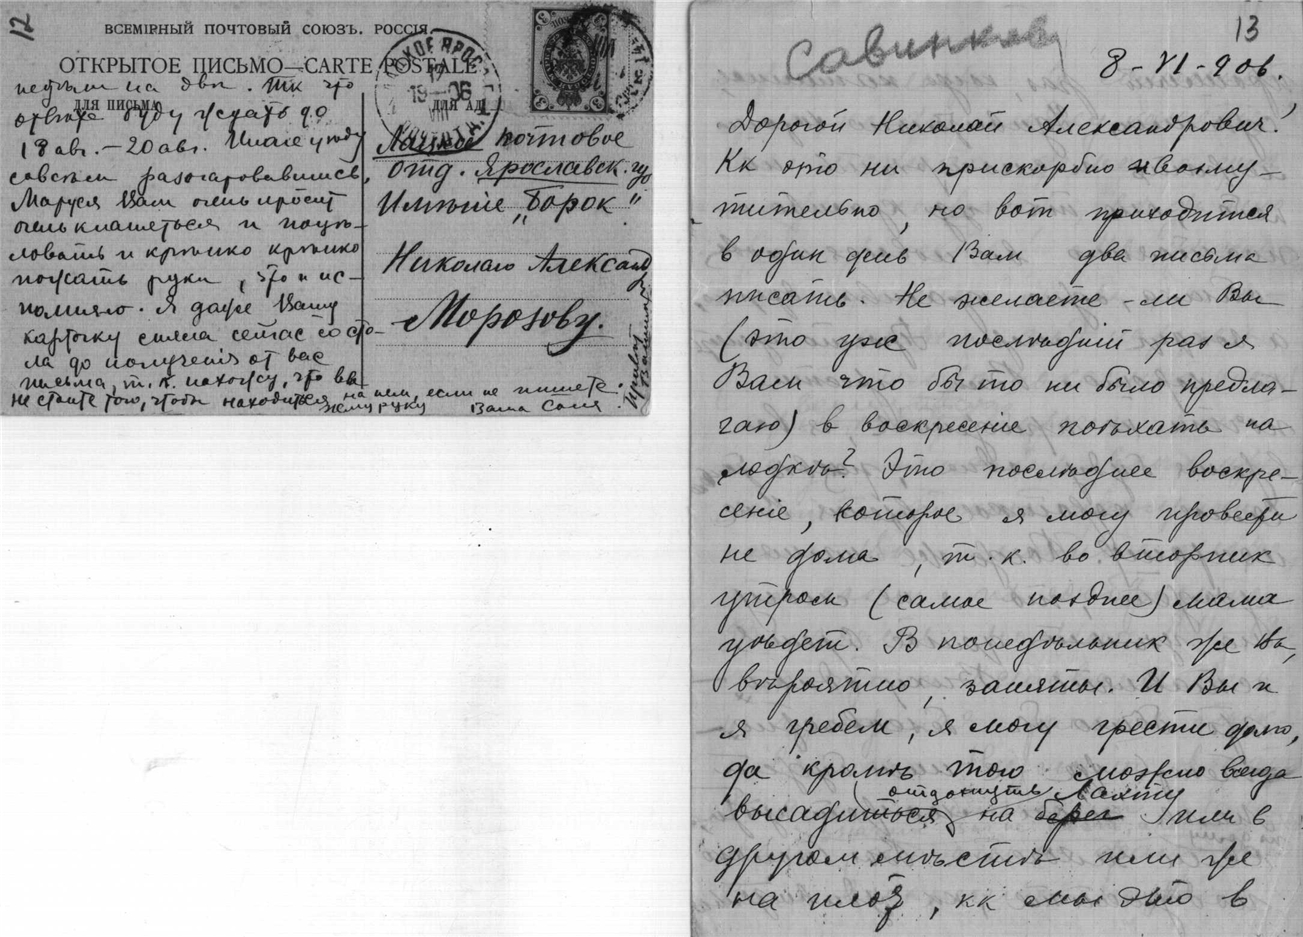 12
ВСЕМІРНЫЙ ПОЧТОВЫЙ СОЮЗЪ. РОССІЯ
ОТКРЫТОЕ ПИСЬМО—CARTE POSTALE
ДЛЯ ПИСЬМА
ДЛЯ АД
на два. Тк что
ответа буду ждать до
18 авг. — 20 авг. Иначе уйду
совсем разочаровавшись.
Маруся Вам очень просит
очень кланяться и поцѣ-
ловать и крѣпко крѣпко
пожать руки, что и ис-
полняю. Я даже Вашу
карточку сняла сейчас со сто-
ла до полученія от вас
письма, т. к. нахожу, что вы
не стоите того, чтобы находиться на нем, если не пишете.
жму руку Ваша Соня.
почтовое
отд. Ярославск. гу
Имѣніе „Борок“
Николаю Александ
Морозову.
19 06
Савинков
13
8 - VI - 906.
Дорогой Николай Александрович!
Кк это ни прискорбно и возму-
тительно, но вот приходится
в один день Вам два письма
писать. Не желаете-ли Вы
(это уж послѣдній раз я
Вам что бы то ни было предла-
гаю) в воскресеніе поѣхать на
лодкѣ? Это послѣднее воскре-
сеніе, которое я могу провести
не дома, т. к. во вторник
утром (самое позднее) мама
уѣдет. В понедѣльник же Вы,
вѣроятно, заняты. И Вы и
я гребем, я могу грести долго,
да кромѣ того можно всегда
отдохнуть Лахту
высадиться на берег или в
другом мѣстѣ или же
на, кк мы это в